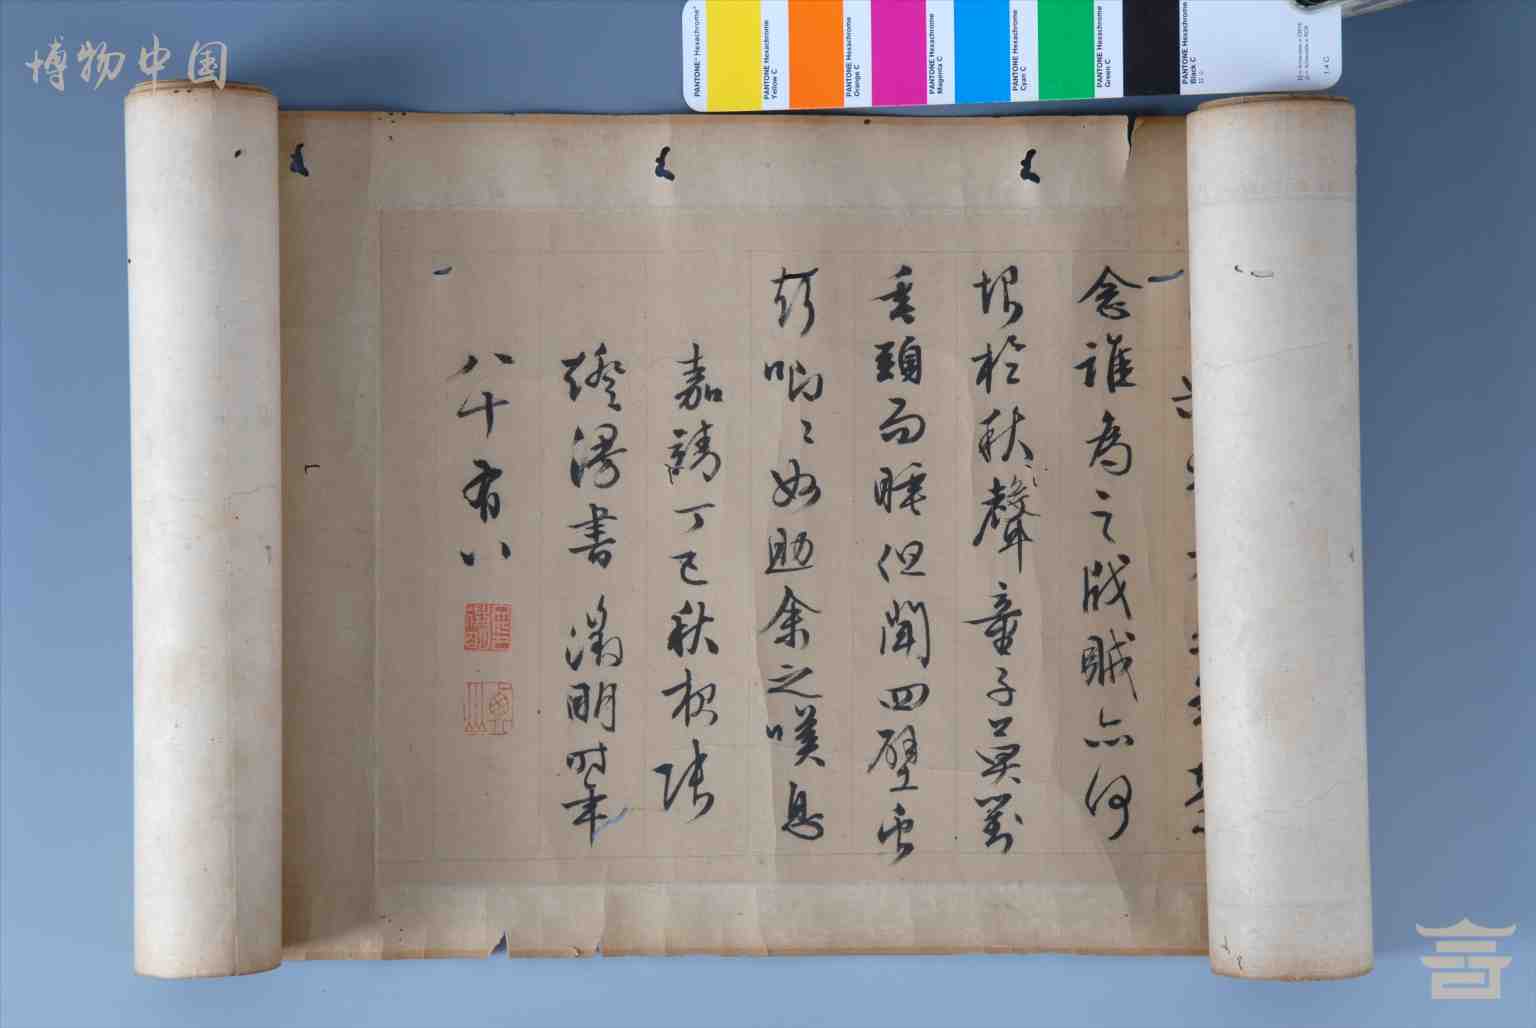 博物中国
PANTONE® Hexachrome®
PANTONE Hexachrome Yellow C
PANTONE Hexachrome Orange C
PANTONE Hexachrome Magenta C
PANTONE Hexachrome Cyan C
PANTONE Hexachrome Green C
PANTONE Hexachrome Black C
念誰為之戕賊亦何
恨於秋聲童子莫對
垂頭而睡但聞四壁虫
聲唧〻如助余之嘆息
嘉靖丁巳秋夜張
燈漫書 徵明時年
八十有八